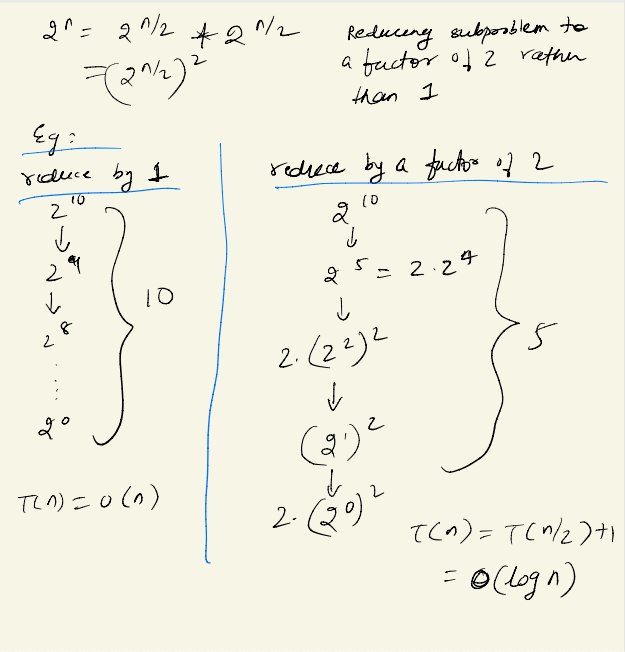 2^n = 2^n/2 * 2^n/2
= (2^n/2)^2
Reducing subproblem to
a factor of 2 rather
than 1
Eg:
reduce by 1
2^10
↓
2^9
↓
2^8
⋮
2^0
} 10
T(n) = O(n)
reduce by a factor of 2
2^10
↓
2^5 = 2.2^4
↓
2.(2^2)^2
↓
(2^1)^2
↓
2.(2^0)^2
} 5
T(n) = T(n/2)+1
= O(log n)